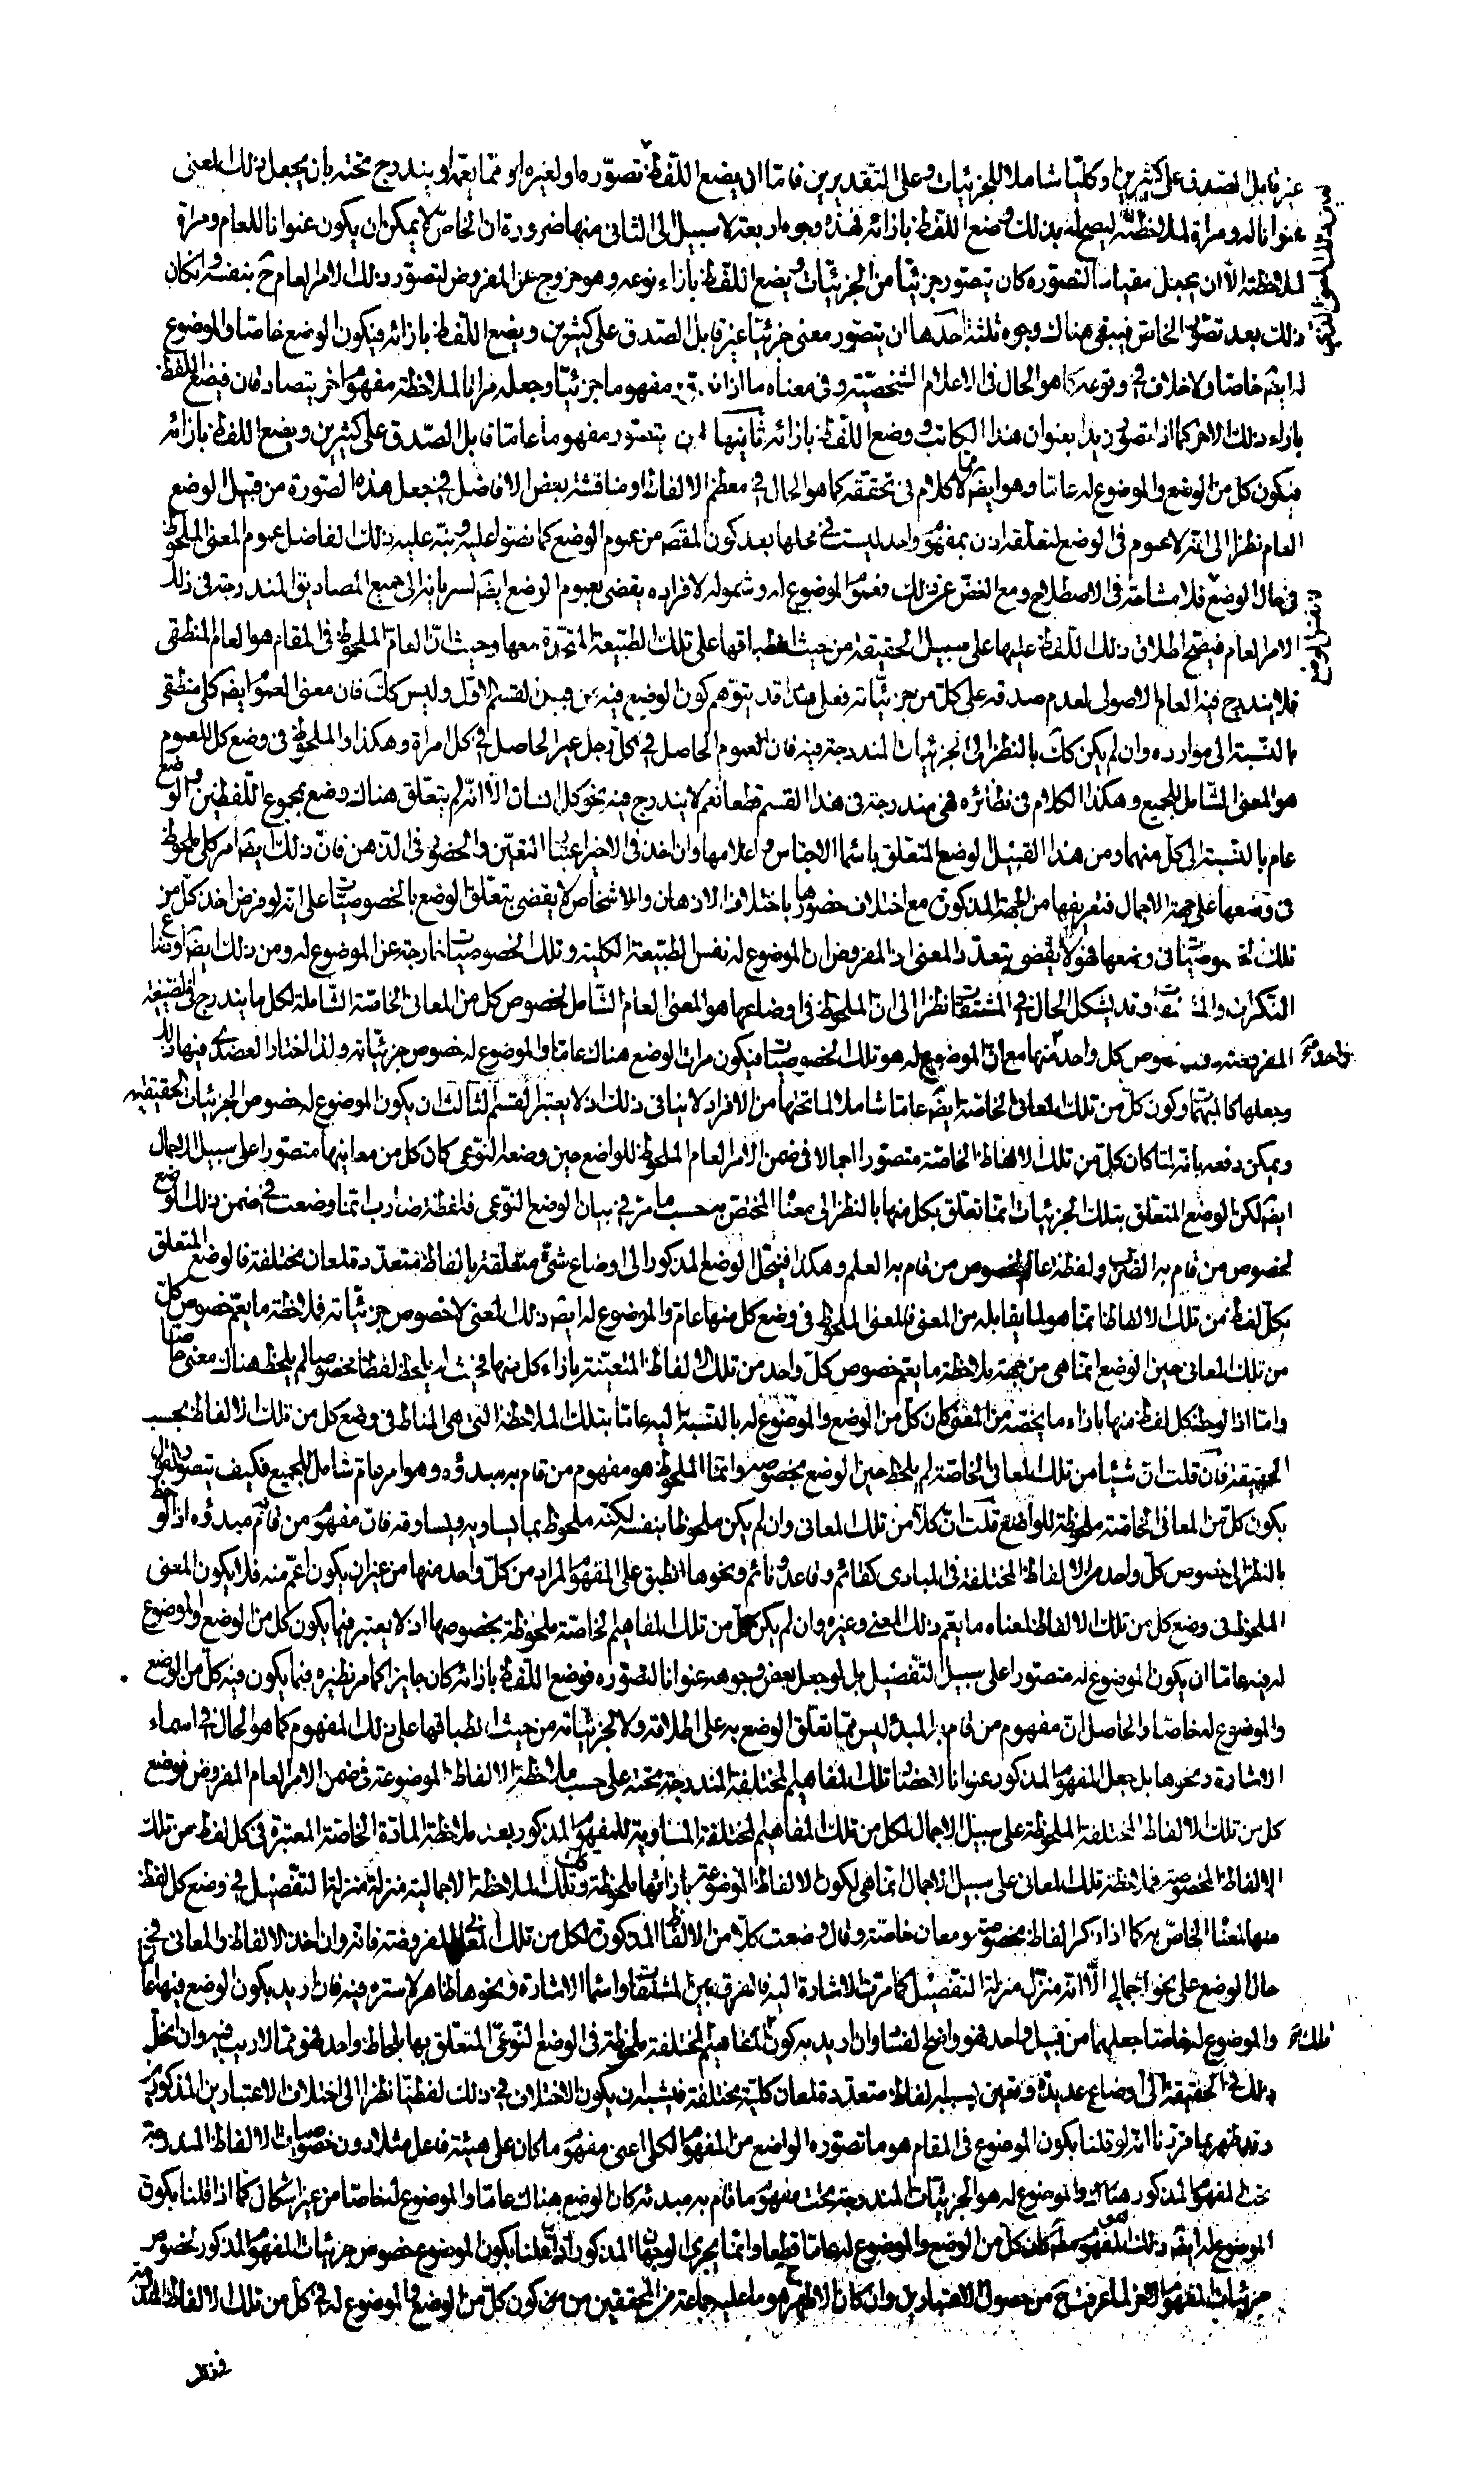 غير قابل للصدق على كثيرين او كليّا شاملا للجزئيات وعلى التقديرين فامّا ان يضع اللفظ لما تصوّره او لغيره ممّا يعمّه او يندرج تحته بان يجعل ذلك المعنى
عنوانا له ومراة لملاحظته ليصح له بذلك وضع اللفظ بازائه فهذه وجوه اربعة لا سبيل الى الثانى منها ضرورة ان الخاصّ لا يمكن ان يكون عنوانا للعام ومراة
لملاحظته الا ان يجعل مقياسا لتصوره كان يتصور جزئيا من الجزئيات ويضع اللفظ بازاء نوعه وهو خروج عن المفروض لتصوّر ذلك الامر العام ح بنفسه وان كان
ذلك بعد تصوّر الخاص فيبقى هناك وجوه ثلثة احدها ان يتصوّر معنى جزئيا غير قابل الصّدق على كثيرين ويضع اللفظ بازائه فيكون الوضع خاصّا والموضوع
له ايضا خاصا ولا خلاف فى وقوعه كما هو الحال فى الاعلام الشخصيّة وفى معناه ما اذا تصوّر مفهوما جزئيّا وجعله مراتا لملاحظة مفهوم اخر يتصادقان فيضع اللفظ
بازاء ذلك الاخر كما اذا تصوّر زيدا بعنوان هذا الكاتب ووضع اللفظ بازائه ثانيها ان يتصور مفهوما عامّا قابل الصّدق على كثيرين ويضع اللفظ بازائه
فيكون كل من الوضع والموضوع له عاما وهو ايضا مما لا كلام فى تحققه كما هو الحال فى معظم الالفاظ ومناقشة بعض الافاضل فى جعل هذه الصّورة من قبيل الوضع
العام نظرا الى انّه لا عموم فى الوضع لتعلّقه اذن بمفهوم واحد ليست فى محلها بعد كون المقصود من عموم الوضع كما نصّوا عليه ونبّه عليه ذلك الفاضل عموم المعنى الملحوظ
فى حال الوضع فلا مشاحّة فى الاصطلاح ومع الغضّ عن ذلك فعموم الموضوع له وشموله لافراده يقضى بعموم الوضع ايضا لسريانه الى جميع المصاديق المندرجة فى ذلك
الامر العام فيصح اطلاق ذلك اللّفظ عليها على سبيل الحقيقة من حيث انطباقها على تلك الطبيعة المتحدة معها وحيث ان العام الملحوظ فى المقام هو العام المنطقى
فلا يندرج فيه العام الاصولى لعدم صدقه على كلّ من جزئيّاته فعلى هذا قد يتوهم كون الوضع فيه من قبيل القسم الاوّل وليس كك فان معنى العموم ايضا كلى منطقى
بالنسبة الى موارده وان لم يكن كك بالنظر الى الجزئيات المندرجة فيه فان العموم الحاصل فى كلّ رجل غير الحاصل فى كل امراة وهكذا والملحوظ فى وضع كل للعموم
هو المعنى الشامل للجميع وهكذا الكلام فى نظائره فهى مندرجة فى هذا القسم قطعا نعم لا يندرج فيه نحو كل انسان الا انّه لم يتعلّق هناك وضع بمجموع اللفظين والوضع
عام بالنسبة الى كلّ منهما ومن هذا القبيل الوضع المتعلق باسماء الاجناس واعلامها وان اخذ فى الاخير اعتبار التعيّن والحضور فى الذهن فانّ ذلك ايضا امر كلى ملحوظ
فى وضعها على جهة الاجمال فتعريفها من الجهة المذكورة مع اختلاف حضورها باختلاف الاذهان والاشخاص لا يقضى بتعلق الوضع بالخصوصيّات على انّه لو فرض اخذ كلّ من
تلك الخصوصيّات فى وضعها فهو لا يقضى بتعدّد المعنى اذ المفروض ان الموضوع له نفس الطبيعة الكلية وتلك الخصوصيات خارجة عن الموضوع له ومن ذلك ايضا اوضاع
النكرات والمشتقات وقد يشكل الحال فى المشتقات نظرا الى انّ الملحوظ فى اوضاعها هو المعنى العام الشّامل لخصوص كل من المعانى الخاصّة الشّاملة لكل ما يندرج فى الصّيغة
المفروضة وخصوص كل واحد منها مع انّ الموضوع له هو تلك الخصوصيات فيكون مراة الوضع هناك عامّا والموضوع له خصوص جزئيّاته ولذا اختار العضدى فيها ذلك
وجعلها كالمبهمات وكون كلّ من تلك المعانى الخاصّة ايضا عامّا شاملا لما تحتها من الافراد لا ينافى ذلك اذ لا يعتبر القسم الثالث ان يكون الموضوع له خصوص الجزئيات الحقيقية
ويمكن دفعه بانّه لمّا كان كلّ من تلك الالفاظ الخاصّة متصوّرا اجمالا فى ضمن الامر العام الملحوظ للواضع حين وضعه النوعى كان كل من معانيها متصورا على سبيل الاجمال
ايضا لكنّ الوضع المتعلق بتلك الجزئيات انما تعلّق بكل منها بالنظر الى معناه المختصّ به حسب ما مرّ فى بيان الوضع النّوعى فلفظة ضارب انّما وضعت فى ضمن ذلك الوضع
لخصوص من قام به الضرب ولفظة عالم لخصوص من قام به العلم وهكذا فينحلّ الوضع المذكور الى اوضاع شتّى متعلّقة بالفاظ متعدّدة لمعان مختلفة فالوضع المتعلق
بكلّ لفظ من تلك الالفاظ انّما هو لما يقابله من المعنى فالمعنى الملحوظ فى وضع كل منها عامّ والموضوع له ايضا ذلك المعنى لا خصوص جزئيّاته فملاحظة ما يعمّ خصوص كلّ
من تلك المعانى حين الوضع انّما هى من جهة ملاحظة ما يعم خصوص كلّ واحد من تلك الالفاظ المتعيّنة بازاء كل منها فحيث لم يلحظ لفظا مخصوصا لم يلحظ هناك معنى خاصّا
وامّا اذا لوحظ كل لفظ منها بازاء ما يخصّه من المعنى كان كلّ من الوضع والموضوع له بالنسبة اليه عامّا بتلك الملاحظة التى هى المناط فى وضع كل من تلك الالفاظ بحسب
الحقيقة فان قلت انّ شيئا من تلك المعانى الخاصّة لم يلحظ حين الوضع بخصوصه وانّما الملحوظ هو مفهوم من قام به مبدؤه وهو امر عام شامل للجميع فكيف يتصوّر القول
بكون كلّ من المعانى الخاصّة ملحوظة للواضع قلت انّ كلّا من تلك المعانى وان لم يكن ملحوظا بنفسه لكنّه ملحوظ بما يساويه ويساوقه فانّ مفهوم من قام به مبدؤه اذا لوحظ
بالنظر الى خصوص كلّ واحد من الالفاظ المختلفة فى المبادى كقائم وقاعد ونائم ونحوها انطبق على المفهوم المراد من كلّ واحد منها من غير ان يكون اعمّ منه فلا يكون المعنى
الملحوظ فى وضع كل من تلك الالفاظ لمعناه ما يعم ذلك المعنى وغيره وان لم يكن كلّ من تلك المفاهيم الخاصّة ملحوظة بخصوصها اذ لا يعتبر فيما يكون كل من الوضع والموضوع
له فيه عامّا ان يكون الموضوع له متصورا على سبيل التّفصيل بل لو جعل بعض وجوهه عنوانا لتصوّره فوضع اللّفظ بازائه كان جايزا كما مر نظيره فيما يكون فيه كلّ من الوضع
والموضوع له خاصّا والحاصل انّ مفهوم من قام به المبدا ليس ممّا تعلّق الوضع به على اطلاقه ولا لجزئيّاته من حيث انطباقها على ذلك المفهوم كما هو الحال فى اسماء
الاشارة ونحوها بل جعل المفهوم المذكور عنوانا لاحضار تلك المفاهيم المختلفة المندرجة تحته على حسب ملاحظة الالفاظ الموضوعة فى ضمن الامر العام المفروض فوضع
كل من تلك الالفاظ المختلفة الملحوظة على سبيل الاجمال لكل من تلك المفاهيم المختلفة المساوية للمفهوم المذكور بعد ملاحظة المادّة الخاصّة المعتبرة فى كل لفظ من تلك
الالفاظ المخصوصة فملاحظة تلك المعانى على سبيل الاجمال انما هى لكون الالفاظ الموضوعة بازائها ملحوظة كك وتلك الملاحظة الاجمالية منزلة منزلة التفصيل فى وضع كل لفظ
منها لمعناه الخاصّ به كما اذا ذكر الفاظ مخصوصة ومعان خاصّة وقال وضعت كلّا من الالفاظ المذكورة لكل من تلك المعانى المفروضة فانّه وان اخذ الالفاظ والمعانى فى
حال الوضع على نحو اجمالى الّا انّه منزّل منزلة التفصيل كما مرّت الاشارة اليه فالفرق بين المشتقات واسماء الاشارة ونحوها ظاهر لا سترة فيه فان اريد بكون الوضع فيها عامّا
والموضوع له خاصّا جعلهما من قبيل واحد فهو واضح الفساد وان اريد به كون تلك المفاهيم المختلفة ملحوظة فى الوضع النوعى المتعلّق بها بلحاظ واحد فهو ممّا لا ريب فيه وان انحلّ
ذلك فى الحقيقة الى اوضاع عديدة وتعيين الفاظ متعدّدة لمعان كليّة مختلفة فيشبه ان يكون الاختلاف فى ذلك لفظيّا نظرا الى اختلاف الاعتبارين المذكورين
وقد ظهر بما قرّرنا انّه لو قلنا بكون الموضوع فى المقام هو ما تصوّره الواضع من المفهوم الكلى اعنى مفهوم ما كان على هيئة فاعل مثلا دون خصوصيات الالفاظ المندرجة
تحت المفهوم المذكور هناك والموضوع له هو الجزئيّات المندرجة تحت مفهوم ما قام به مبدئه كان الوضع هناك عامّا والموضوع له خاصّا من غير اشكال كما اذا قلنا بكون
الموضوع له ايضا ذلك المفهوم كان كلّ من الوضع والموضوع له عامّا قطعا وانما يجرى الوجهان المذكوران اذا قلنا بكون الموضوع خصوص جزئيات المفهوم المذكور لخصوص
جزئيات المفهوم الاخر لما عرفت ح من حصول الاعتبارين وان كان الاظهر هو ما عليه جماعة من المحققين من كون كلّ من الوضع والموضوع له فى كلّ من تلك الالفاظ